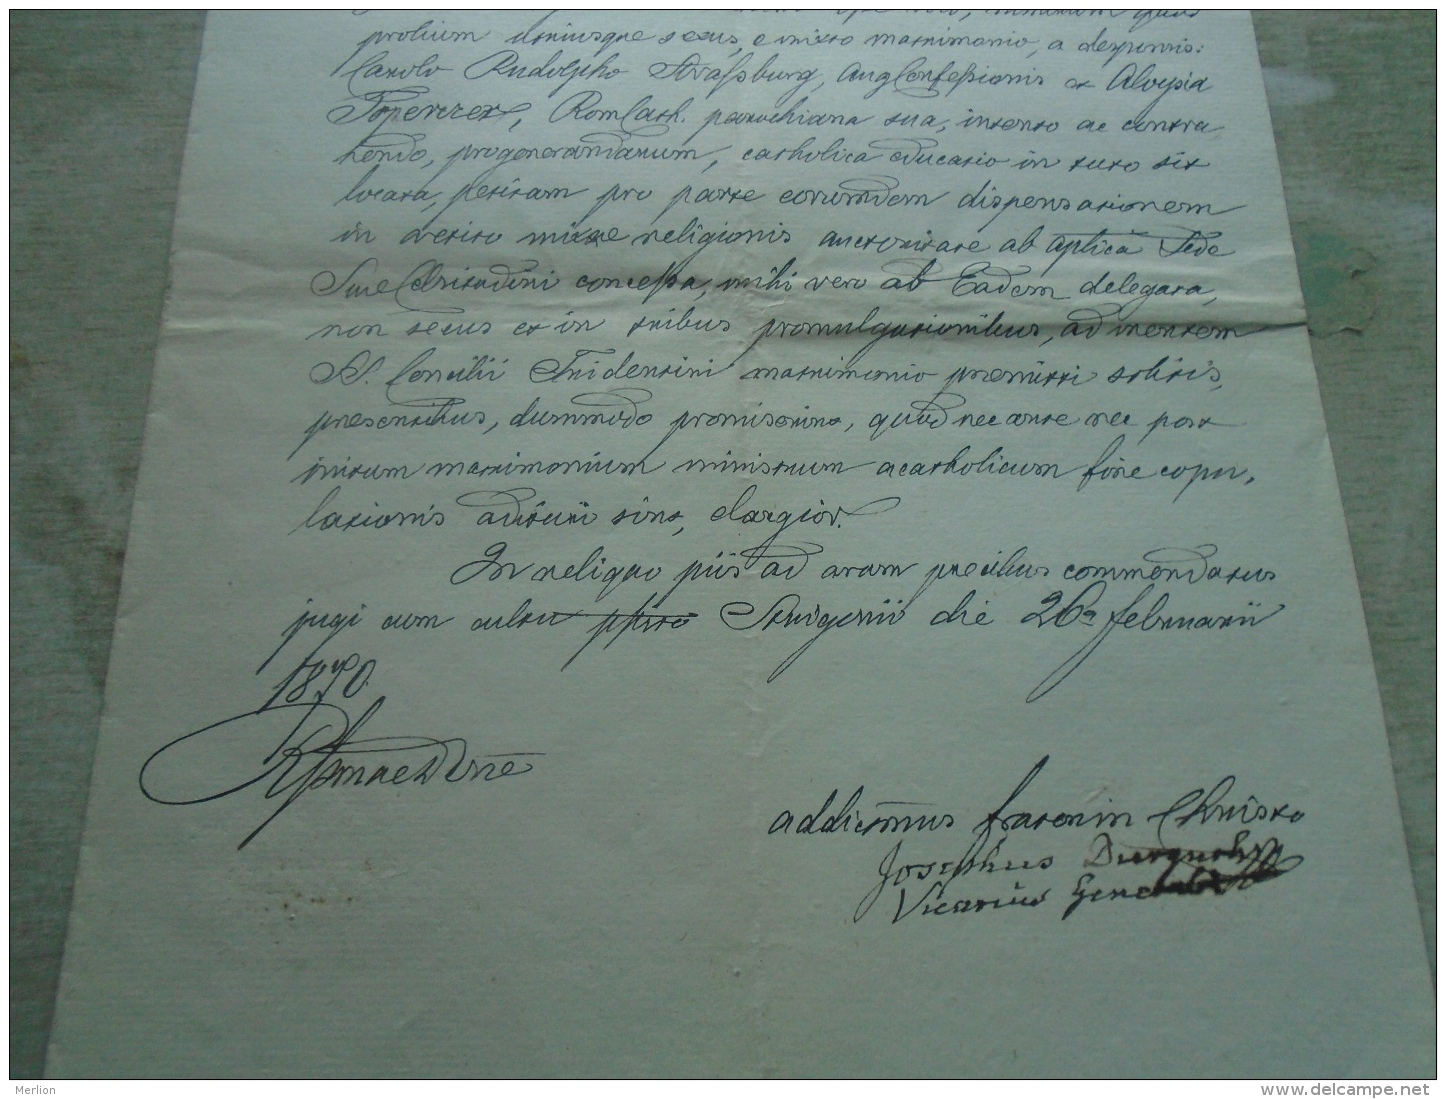 prolium utriusque sexus, e mixto matrimonio, a desponsis:
Carolo Rudolpho Straſsburg, Aug Confeſsionis et Aloysia
Toperczer, Rom Cath. parochiana sua, intento ac contra
hendo, progenerandarum, catholica educatio in tuto sit
locata, petitam pro parte eorumdem dispensationem
in vetito mixtae religionis auctoritate ab aplica Sede
Suae Celsitudini conceſsa, mihi vero ab Eadem delegata,
non secus et in tribus promulgationibus, ad mentem
S. Concilii Tridentini matrimonio praemitti solitis,
praesentibus, dummodo promiserint, quod nec ante nec post
initum matrimonium ministrum acatholicum fine copu,
lationis adituri sint, elargior.
In reliquo piis ad aram precibus commendatus
jugi cum cultu Strigonii die 26a februarii
1870.
addictmus frater in Christo
Josephus
Vicarius Generalis
Merlion
www.delcampe.net